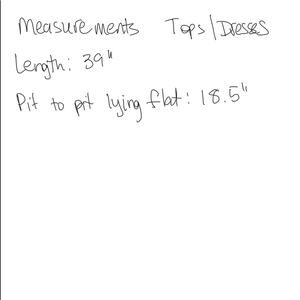 Measurements Tops/Dresses
Length: 39"
Pit to pit lying flat: 18.5"